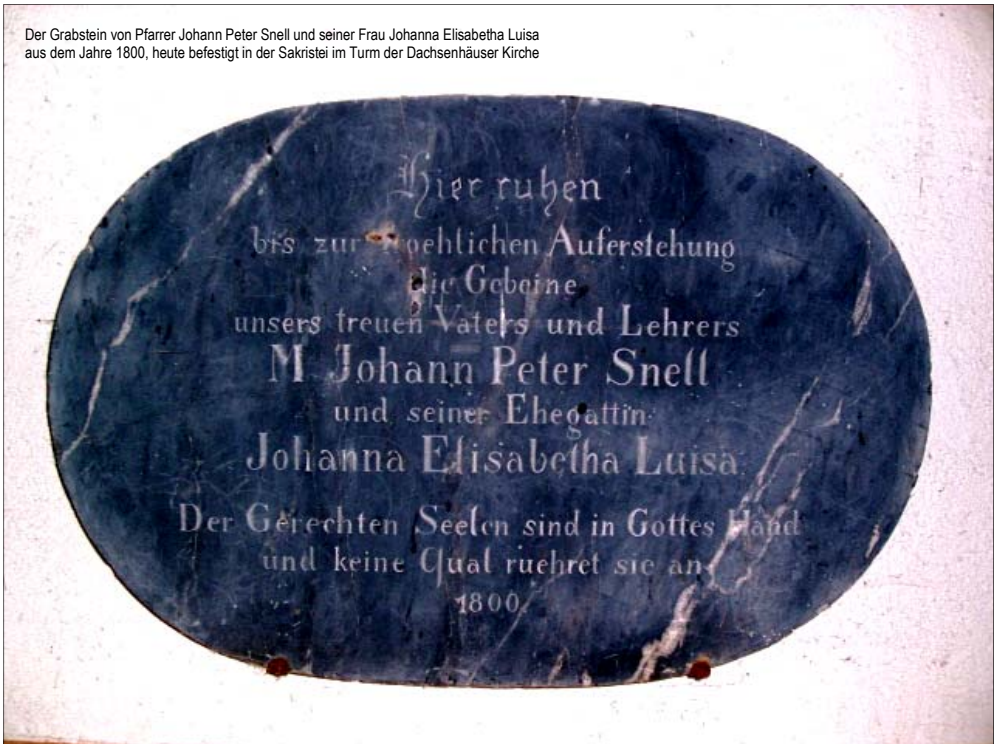 Der Grabstein von Pfarrer Johann Peter Snell und seiner Frau Johanna Elisabetha Luisa
aus dem Jahre 1800, heute befestigt in der Sakristei im Turm der Dachsenhäuser Kirche
Hier ruhen
bis zur Auferstehung
die Gebeine
unsers treuen Vaters und Lehrers
M Johann Peter Snell
und seiner Ehegattin
Johanna Elisabetha Luisa
Der Gerechten Seelen sind in Gottes Hand
und keine Qual ruehret sie an
1800